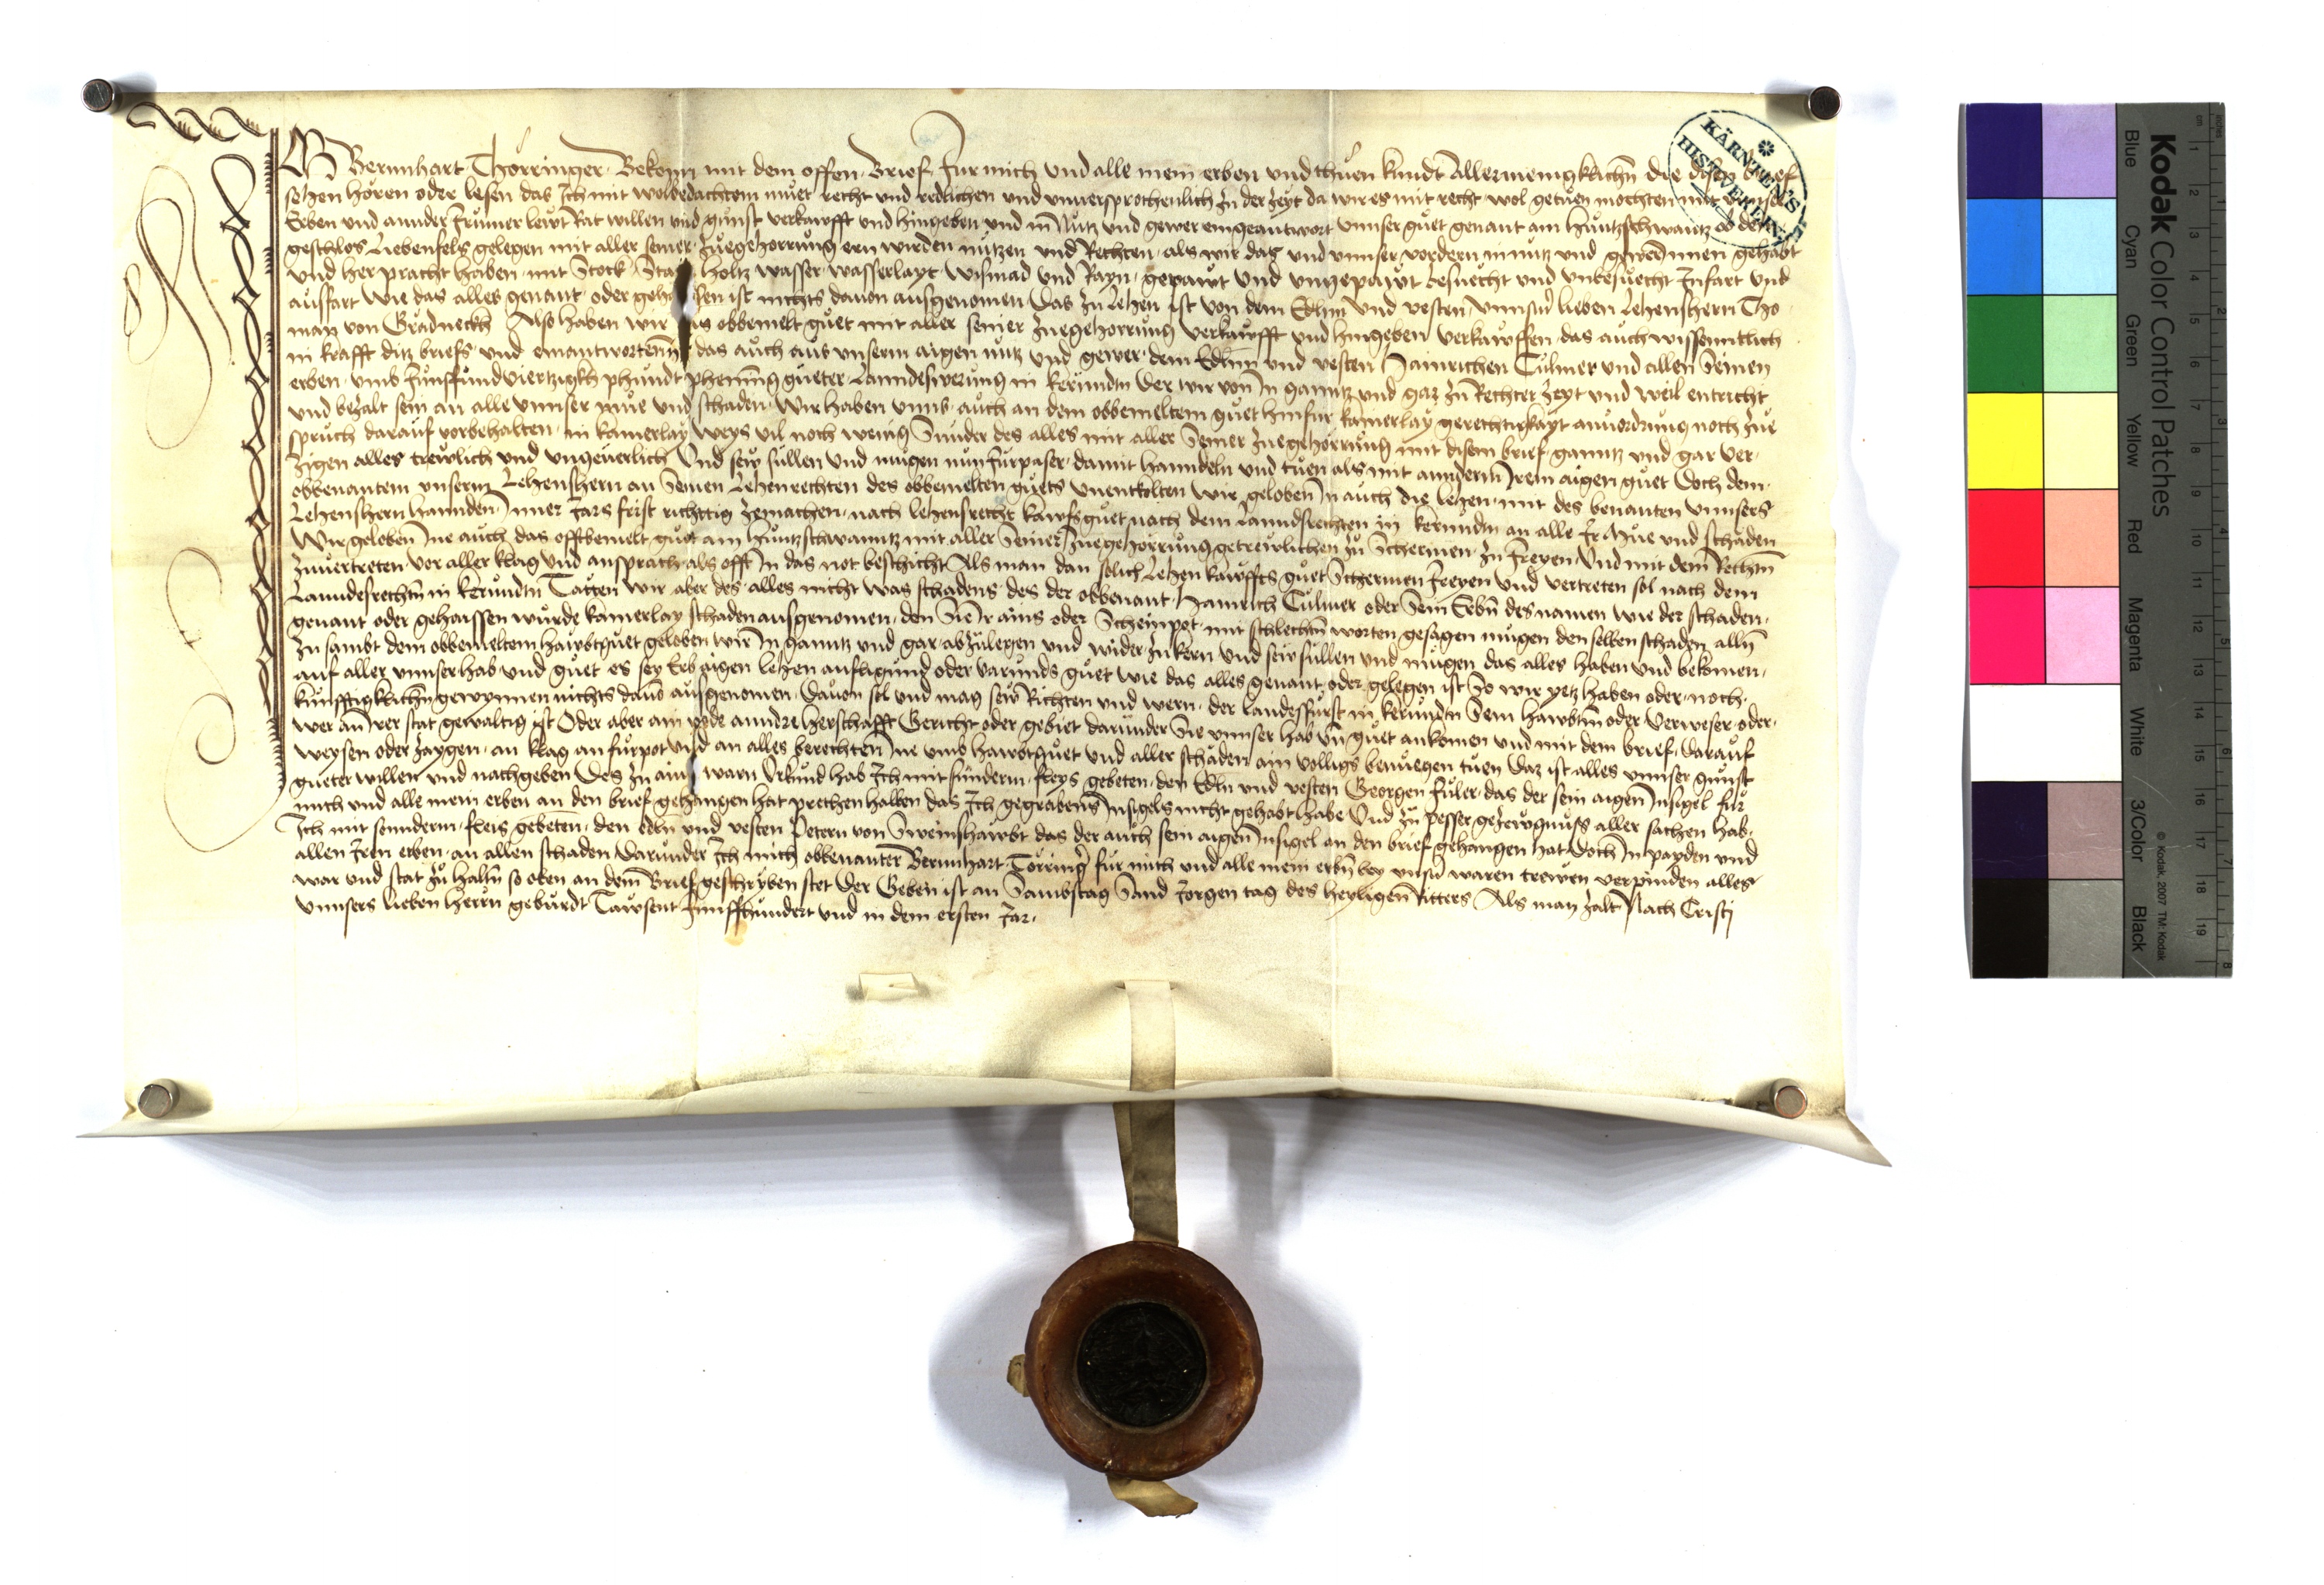 Ich Bernnhart Thörringer Bekenn mit dem offen Brief für mich und alle mein erben und thuen kundt Allermenigklichn̄ die disen brief
sehen hören oder lesen das Ich mit wolbedachtem muet recht und redlichen und unuersprochenlich zu der zeyt da wir es mit recht wol getuen mochten mit unnser
Erben und annder frumer lewt Rat willen und gunst verkaufft und hingeben und in Nutz und gewer eingeantwort unnser guet genant am Huntzschwantz ob dem
geschlos Liebenfels gelegen mit aller seiner zuegehorrung ern wirden nutzen und Rechten als wir das und unnser vordern in nutz und gewer Innen gehabt
und her pracht haben mit Stock Stain holtz wasser wasserlayt wismad und Rayn gepawt und ungepawt besuecht und unbesuecht Infart und
ausfart wie das alles genant oder gehaissen ist nichts dauon ausgenomen Das zu lehen ist von dem Edlnn und vesten unnserm lieben Lehensherrn Tho
man von Gradneckh Also haben wir das obbemelt guet mit aller seiner zuegehorrung verkaufft und hingeben verkauffen das auch wissenntlich
in krafft ditz briefs und einantworten In das auch aus unserm aigen nutz und gewer dem Edlnn und vesten Hainrichen Tulmer und allen Seinen
erben umb funffundviertzigkh phundt phening gueter Lanndeswerung in kernndtn Der wir von In ganntz und gar zu Rechter zeyt und weil entricht
und bezalt sein an alle unnser mue und schaden Wir haben unns auch an dem obbemeltem guet hinfur kainerlay gerechtigkayt anuordrung noch zue
spruch darauf vorbehalten in kainerlay weys vil noch wenig Sunder des alles mit aller Seiner zuegehorrung mit disem brief ganntz und gar ver
zigen alles trewlich und ungeuerlich Und sew sullen und mugen nun furpaser damit hanndeln und tuen als mit annderm Irem aigen guet Doch dem
obbenantem unserm Lehensherrn an Seinen Lehenrechten des obbemelten guets unentkolten wir geloben In auch die lehen mit des benanten unnsers
Lehensherrn hannden Inner Jars frist richttig zemachen nach lehensrecht kaufsguet nach dem lanndsrechten in kernndtn an alle Ir Mue und schaden
Wir geloben Ine auch das offtbemelt guet am huntzschwanntz mit aller Seiner zuegehorrung getrewlichen zu Schermen zu freyen und mit dem Rechtn̄
zuuertreten vor aller klag und ansprach als offt In das not beschicht Als man dan solich Lehen kauffts guet Schermen freyen und vertreten sol nach dem
Lanndesrechtn̄ in kernndtn Tatten wir aber des alles nicht was schadens des der obbenant Hainrich Tulmer oder Sein Erbn̄ des namen wie der schaden
genant oder gehaissen wurde kainerlay schaden ausgenomen den Sie Ir ains oder Scheinpot mit schlechtn̄ worten gesagen mugen den selben schaden alln̄
zu sambt dem obbemeltem haubtguet geloben wir In ganntz und gar abzulegen und wider zu kern und sew sullen und mugen das alles haben und bekomen
auf aller unnser hab und guet es sey Erb aigen lehen aufligund oder varunds guet wie das alles genant oder gelegen ist So wir yetz haben oder noch
kunfftigklichn̄ gewynnen nichts dauō ausgenomen Dauon sol und mag sew Richten und wern der landesfurst in kernndtn Sein haubtm̄ oder verweser oder
wer an Irer stat gewaltig ist Oder aber ain yede anndre herschafft Gericht oder gebiet darunder Sie unnser hab und guet ankomen und mit dem brief darauf
weysen oder zaygen an klag an furpot und an alles berechten Ine umb haubtguet und aller schaden ain volligs benuegen tuen Das ist alles unnser gunst
gueter willen und nachgeben Des zu ainer warn Urkund hab Ich mit sunderm fleys gebeten den Edln und vesten Georgen fuler das der sein aigen Insigel fur
mich und alle mein erben an den brief gehangen hat prechenhalben das Ich gegrabens Insigels nicht gehabt habe Und zu pesser gezewgnuss aller sachen hab
Ich mit sonnderm fleis gebeten den edln und vesten Petern von Sweinshaubt das der auch sein aigen Insigel an den brief gehangen hat Doch In payden und
allen Iren erben an allen schaden Darunder Ich mich obbenanter Bernnhart Törringer fur mich und alle mein erbn̄ bey unsern waren trewen verpinden alles
war und stat zu haltn̄ so oben an dem Brief geschryben stet Der Geben ist an Sambstag Sand Jorgen tag des heyligen Ritters Als man zalt Nach Cristj
unnsers lieben herrn geburdt Tawsent funffhundert und in dem ersten Jar
KÄRNTEN'S
HIST. VEREIN
Kodak Color Control Patches
Blue Cyan Green Yellow Red Magenta White 3/Color Black
© Kodak, 2007 TM: Kodak
inches 1 2 3 4 5 6 7 8
cm 1 2 3 4 5 6 7 8 9 10 11 12 13 14 15 16 17 18 19